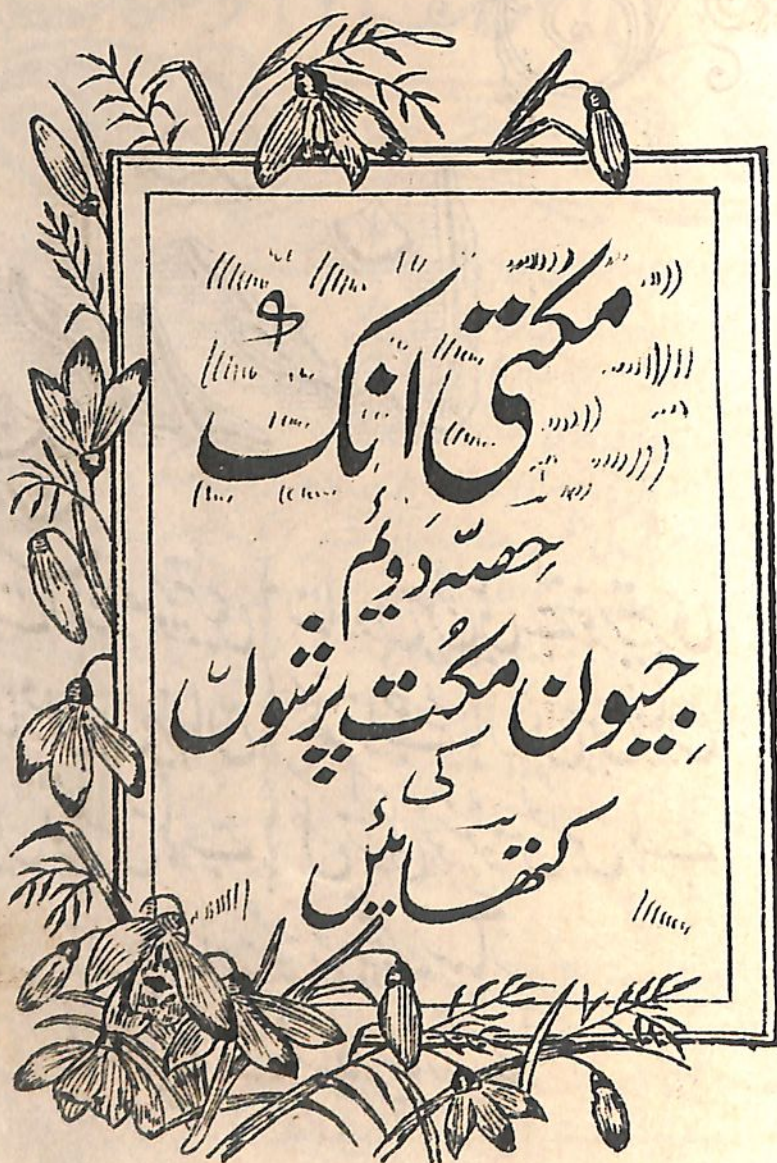 مکتی انک
حصّہ دوئم
جِیون مُکت پرشوں
کی
کتھائیں